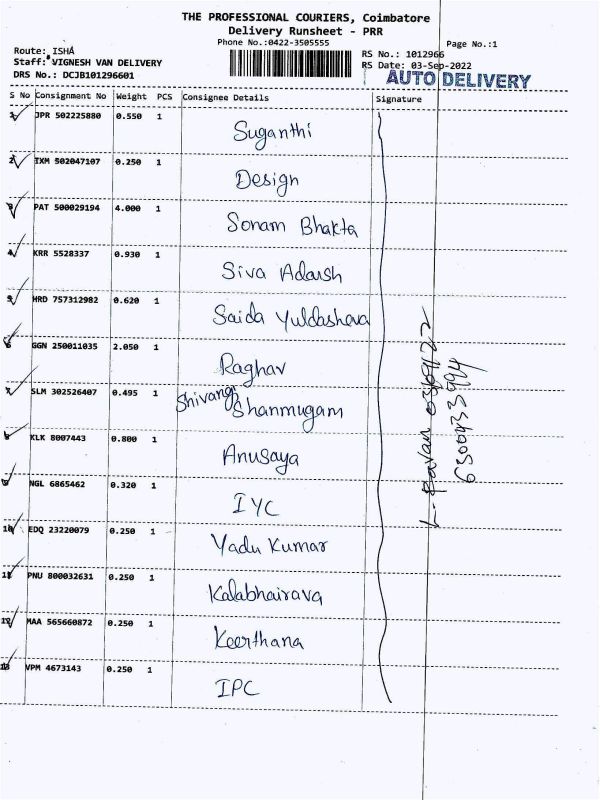 THE PROFESSIONAL COURIERS, Coimbatore
Delivery Runsheet - PRR
Phone No.:0422-3505555
Page No.:1
Route: ISHA
RS No.: 1012966
Staff: VIGNESH VAN DELIVERY
RS Date: 03-Sep-2022
DRS No.: DCJB101296601
AUTO DELIVERY
S No Consignment No Weight PCS Consignee Details Signature
1 JPR 502225880 0.550 1 Suganthi
2 IXM 502047107 0.250 1 Design
3 PAT 500029194 4.000 1 Sonam Bhakta
4 KRR 5528337 0.930 1 Siva Adarsh
5 HRD 757312982 0.620 1 Saida Yuldasheva
6 GGN 250011035 2.050 1 Raghav
7 SLM 302526407 0.495 1 Shivangi Shanmugam
8 KLK 8007443 0.800 1 Anusaya
9 NGL 6865462 0.320 1 IYC
10 EDQ 23220079 0.250 1 Yadu Kumar
11 PNU 800032631 0.250 1 Kalabhairava
12 MAA 565660872 0.250 1 Keerthana
13 VPM 4673143 0.250 1 IPC
L. Pavan
6300433994